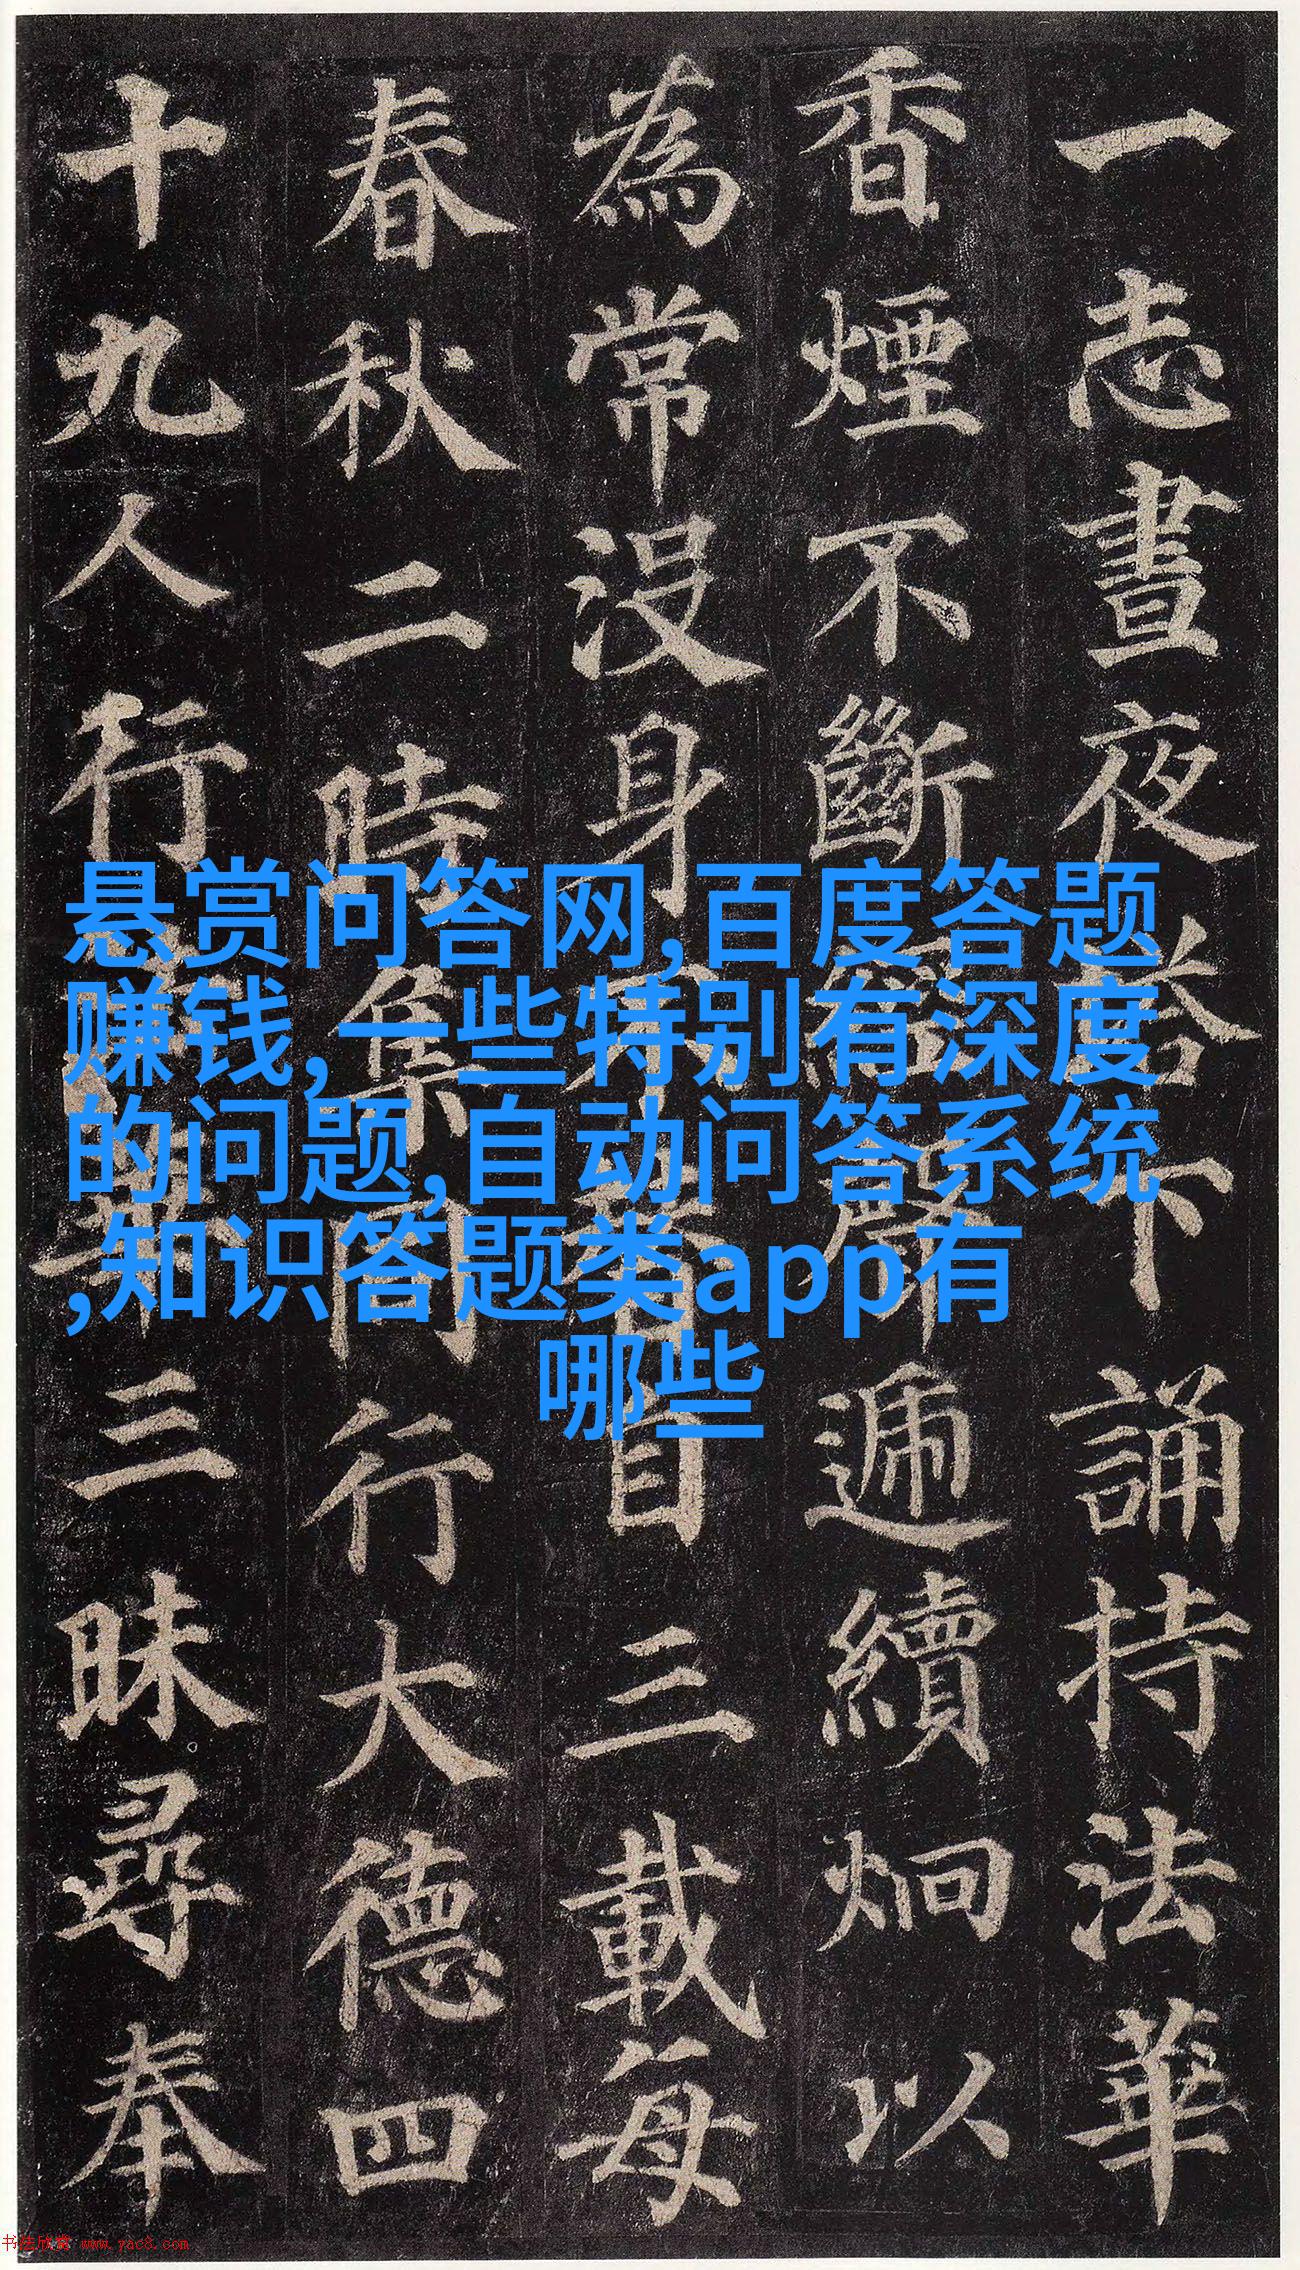 一志晝夜塔下誦持法華
香煙不斷經聲遞續炯以
為常沒身不替自三載每
春秋二時集同行大德四
十九人行法華三昧尋奉
悬赏问答网,百度答题
赚钱,一些特别有深度
的问题,自动问答系统
,知识答题类app有
哪些
书法欣赏 www.yac8.com